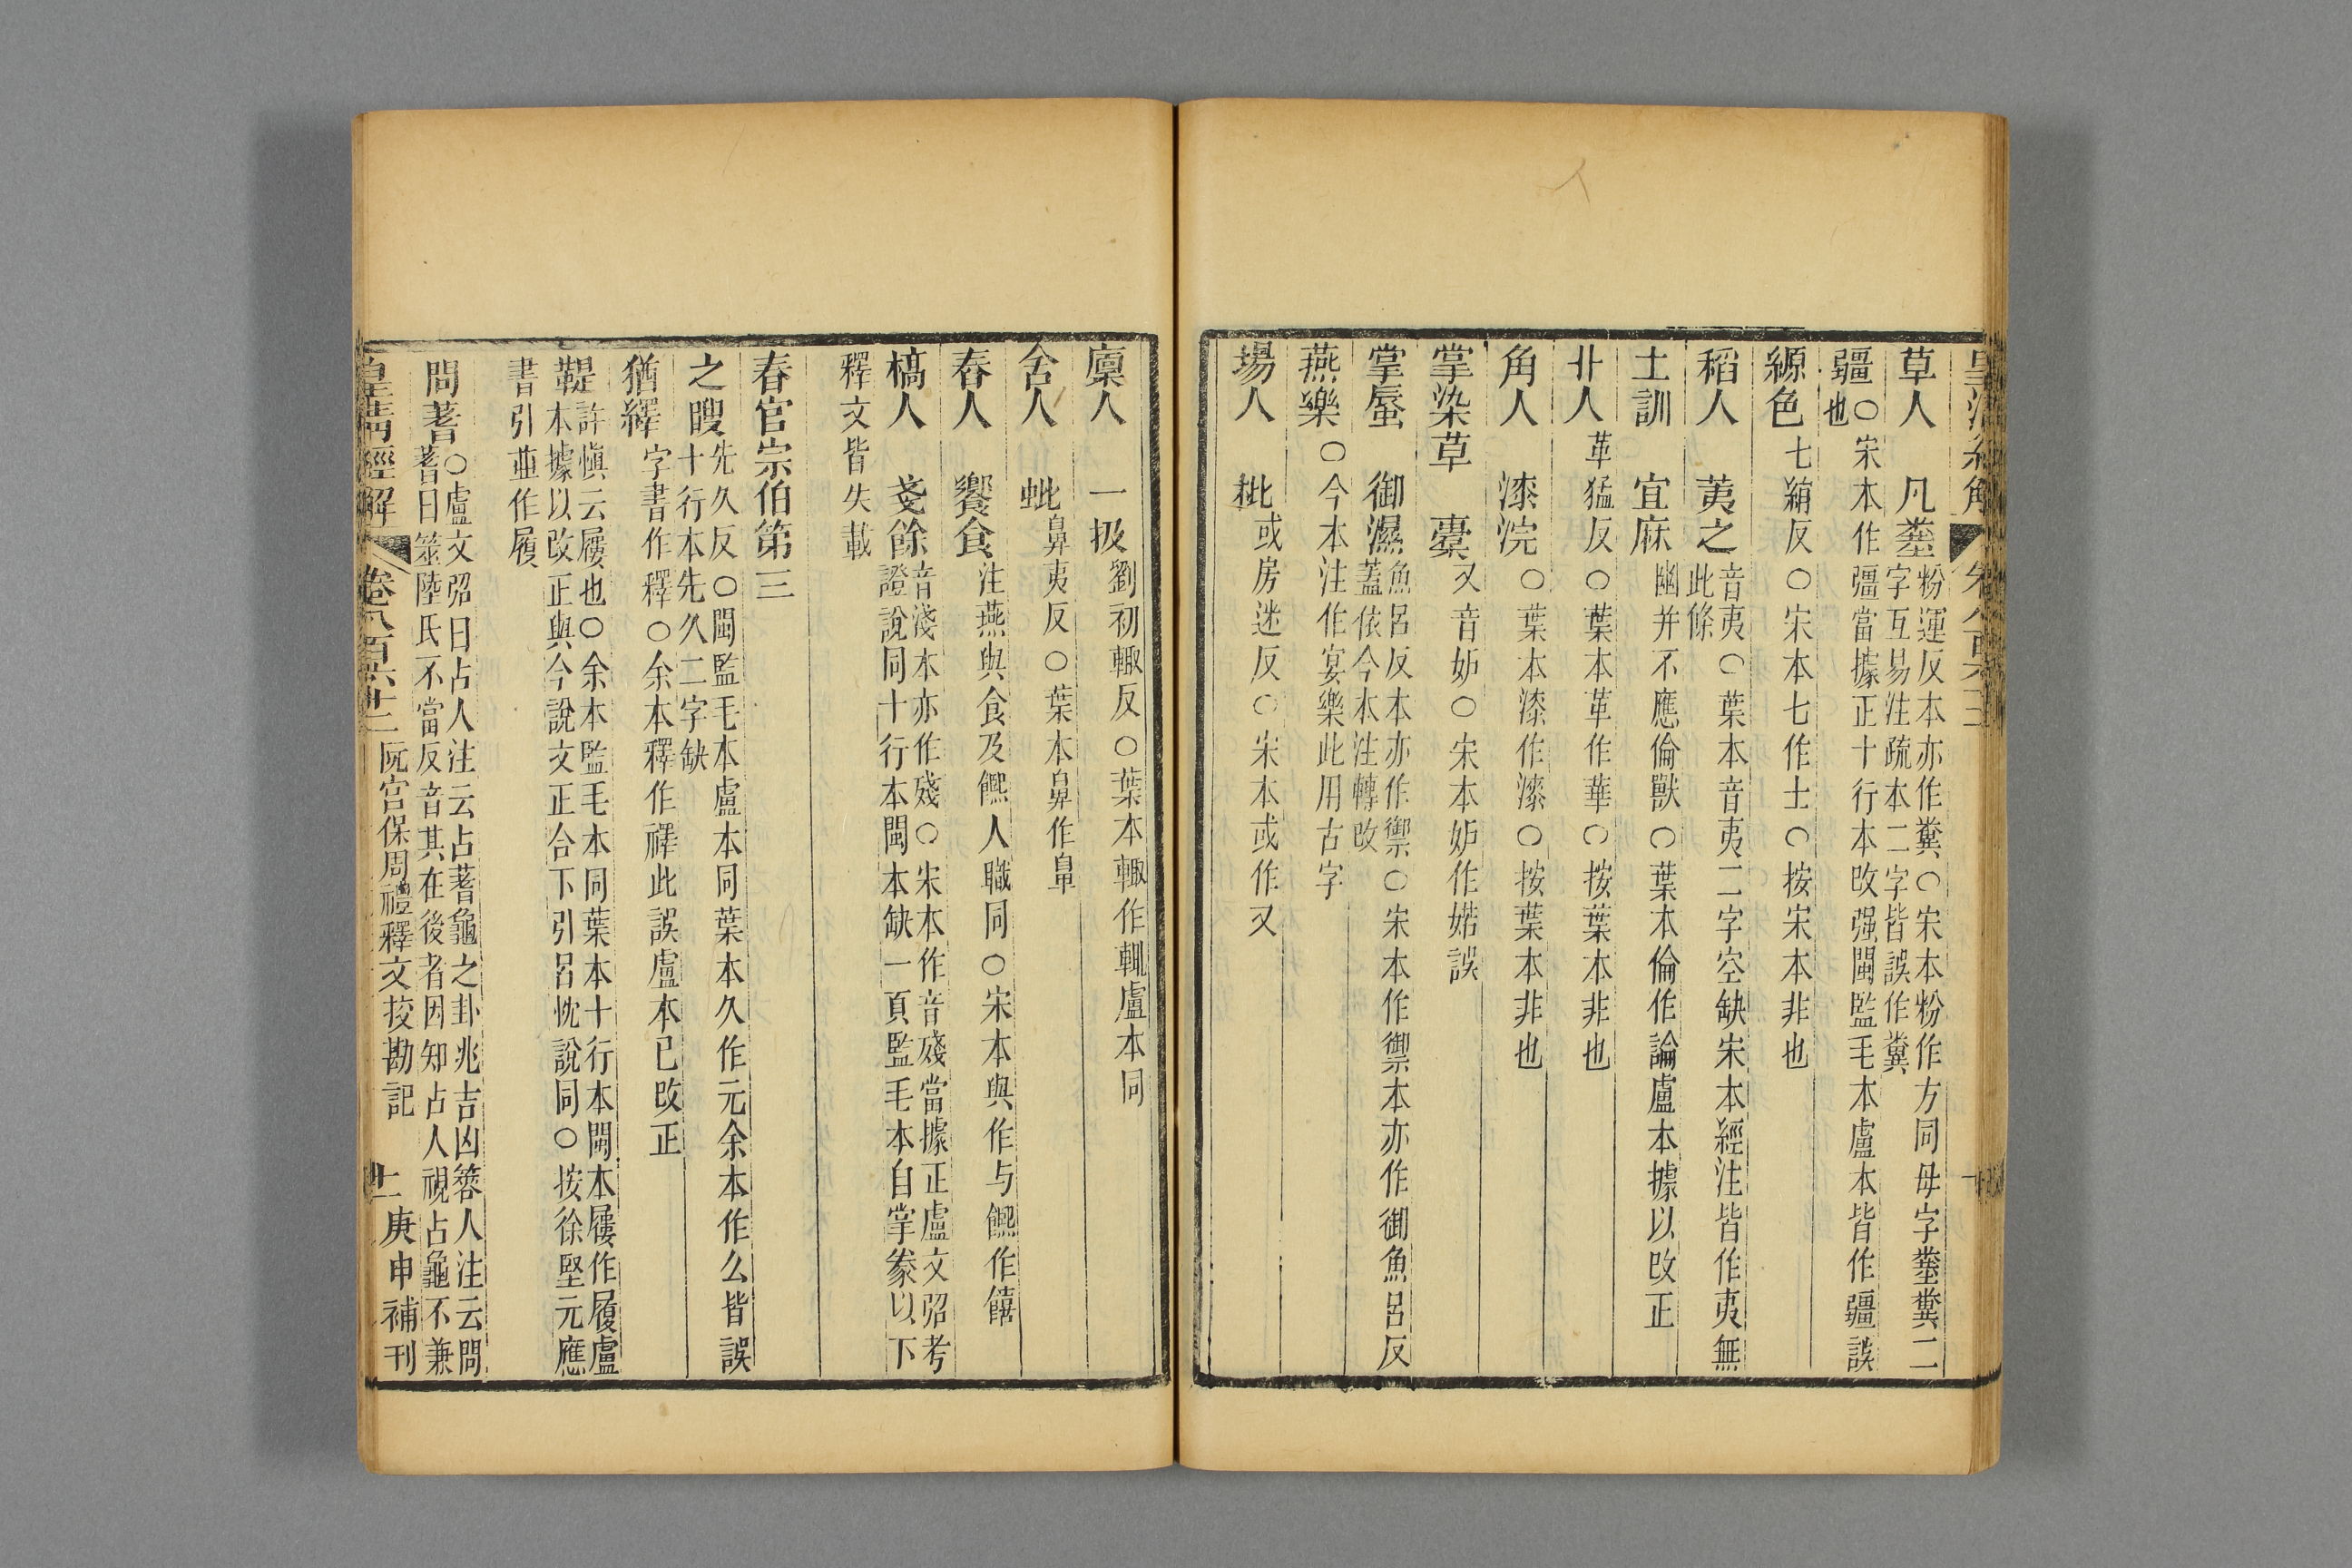 草人　凡𡑞粉運反本亦作糞○宋本粉作方同毋字𡑞糞二
字互易注疏本二字皆誤作糞
疆○宋本作彊當據正十行本改强閩監毛本盧本皆作疆誤
也
縓色七絹反○宋本七作士○按宋本非也
稻人　荑之音夷○葉本音夷二字空缺宋本經注皆作夷無
此條
土訓　宜麻幽并不應倫獸○葉本倫作論盧本據以改正
卝人革猛反○葉本革作華○按葉本非也
角人　漆浣○葉本漆作㯃○按葉本非也
掌染草　橐又音妒○宋本妒作㛭誤
掌蜃　御濕魚呂反本亦作禦○宋本作禦本亦作御魚呂反
蓋依今本注轉改
燕樂○今本注作宴樂此用古字
場人　枇或房迷反○宋本或作又
廩人　一扱劉初輙反○葉本輙作輒盧本同
舍人　蚍鼻夷反○葉本鼻作臯
舂人　饗食注燕與食及饎人職同○宋本與作与饎作饍
槁人　戔餘音淺本亦作殘○宋本作音殘當據正盧文弨考
證說同十行本閩本缺一頁監毛本自掌豢以下
釋文皆失載
春官宗伯第三
之瞍先久反○閩監毛本盧本同葉本久作元余本作么皆誤
十行本先久二字缺
猶繹字書作釋○余本釋作禪此誤盧本已改正
鞮許愼云屨也○余本監毛本同葉本十行本閩本屨作履盧
本據以改正與今說文正合下引呂忱說同○按徐堅元應
書引並作履
問蓍○盧文弨曰占人注云占蓍龜之卦兆吉凶簭人注云問
蓍曰筮陸氏不當反音其在後者因知占人視占龜不兼
皇清經解　卷八百六十二　阮宮保周禮釋文挍勘記　十一　庚申補刊